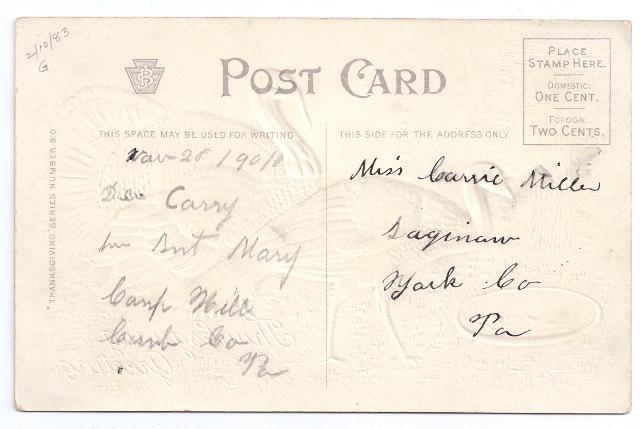 2/10/83
G
POST CARD
PLACE
STAMP HERE.
DOMESTIC:
ONE CENT.
FOREIGN:
TWO CENTS.
THIS SPACE MAY BE USED FOR WRITING
THIS SIDE FOR THE ADDRESS ONLY.
"THANKSGIVING" SERIES NUMBER 90
Nov 28 1908
Dear Carry
Ant Mary
Camp Hill
Cumb Co
Pa
Miss Carrie Miller
Saginaw
York Co
Pa